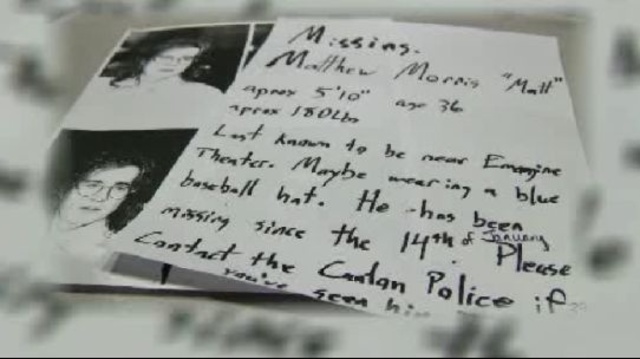 Missing.
Matthew Morris "Matt"
aprox 5'10" age 36
aprox 180Lbs
Last known to be near Emagine
Theater. Maybe wearing a blue
baseball hat. He has been
missing since the 14th of January
Please
Contact the Canton Police if
you've seen him